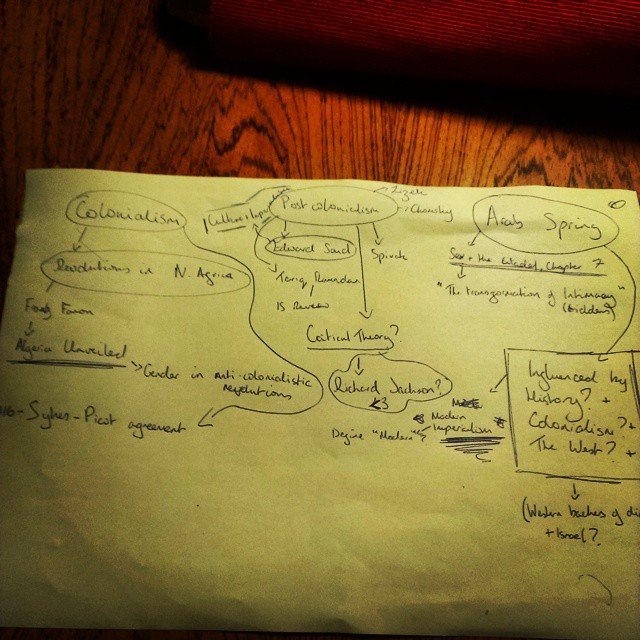 Colonialism
Revolutions in N. Africa
Algeria Unveiled
Gender in anti-colonialistic
revolutions
Sykes-Picot agreement
Post colonialism
Zizek
Chomsky
Edward Said
Spivak
Tariq Ramadan
Critical Theory?
Richard Jackson?
Modern
Imperialism
Define "Modern"?
Arab Spring
Sex + the Citadel, Chapter 7
"The transformation of Intimacy"
(Giddens)
Influenced by
History? +
Colonialism? +
The West? +
(Western backers of di
+ Israel?